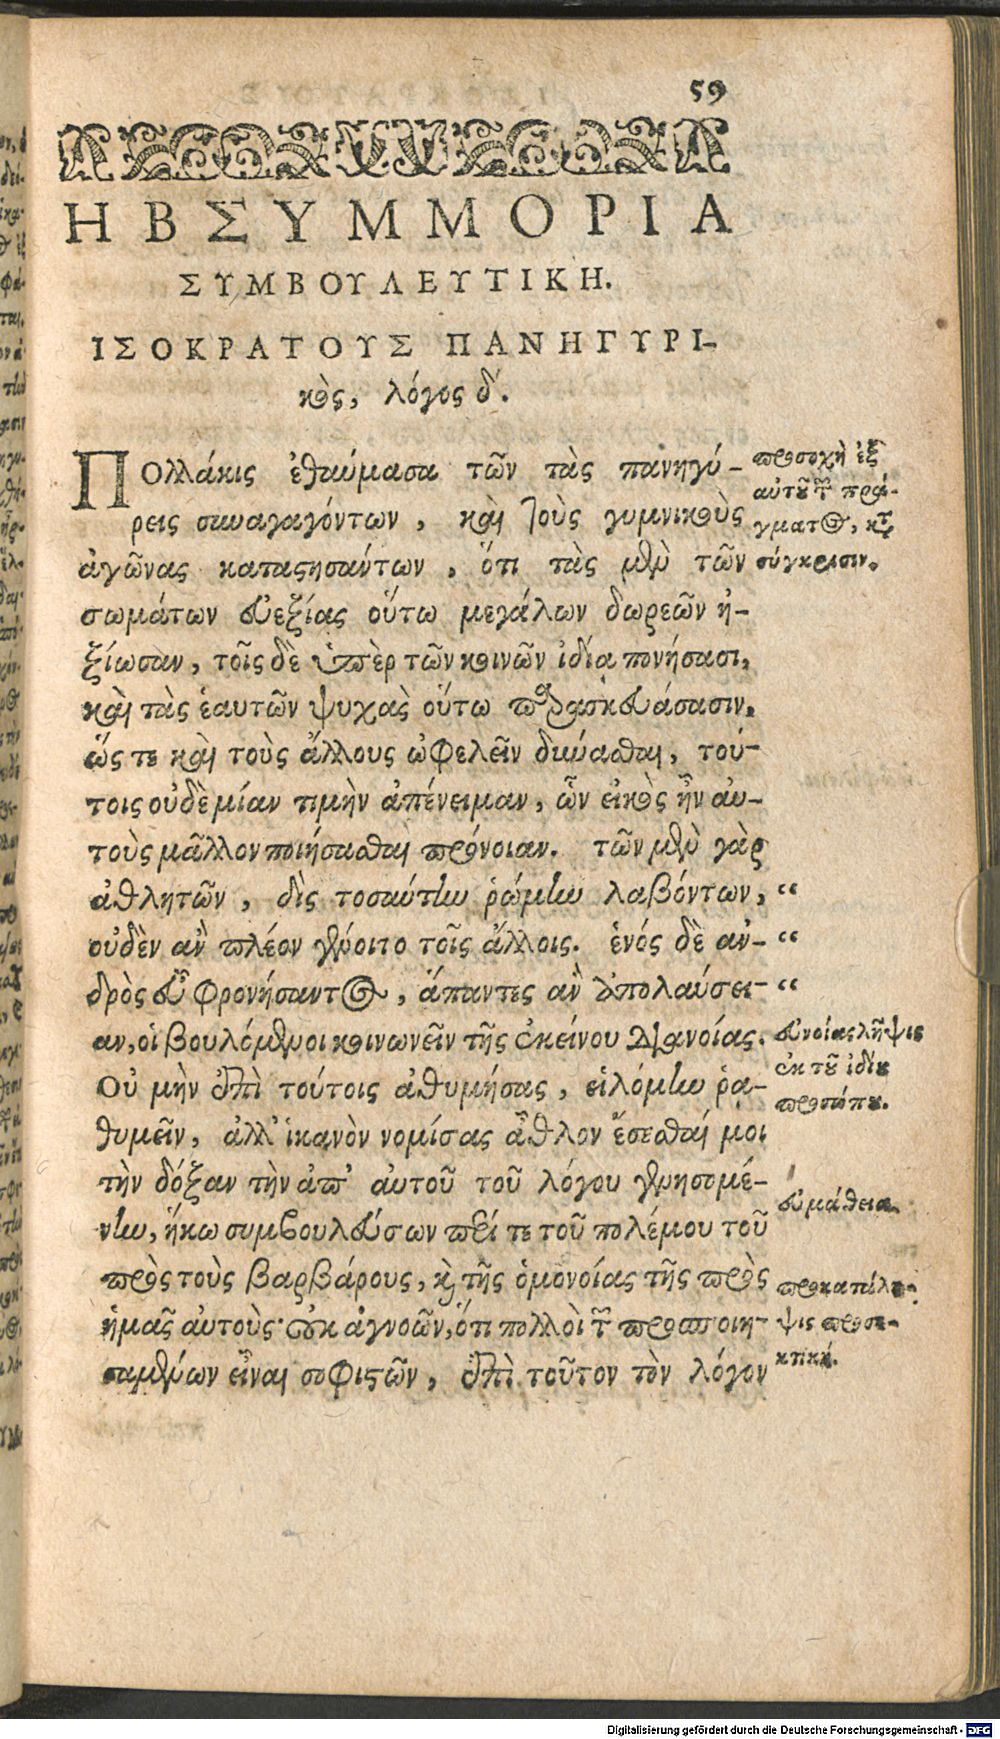 59
Η Β ΣΥΜΜΟΡΙΑ
ΣΥΜΒΟΥΛΕΥΤΙΚΗ.
ΙΣΟΚΡΑΤΟΥΣ ΠΑΝΗΓΥΡΙ-
κὸς, λόγος δ'.
ΠΟλλάκις ἐθαύμασα τῶν τὰς πανηγύ-
ρεις συναγαγόντων, καὶ τοὺς γυμνικοὺς
ἀγῶνας καταστησάντων, ὅτι τὰς μὲν τῶν
σωμάτων εὐεξίας οὕτω μεγάλων δωρεῶν ἠ-
ξίωσαν, τοῖς δὲ ὑπὲρ τῶν κοινῶν ἰδίᾳ πονήσασι,
καὶ τὰς ἑαυτῶν ψυχὰς οὕτω παρασκευάσασιν,
ὥς τε καὶ τοὺς ἄλλους ὠφελεῖν δύνασθαι, τού-
τοις οὐδὲ μίαν τιμὴν ἀπένειμαν, ὧν εἰκὸς ἦν αὐ-
τοὺς μᾶλλον ποιήσασθαι πρόνοιαν. τῶν μὲν γὰρ
ἀθλητῶν, δὶς τοσαύτην ῥώμην λαβόντων, “
οὐδὲν ἂν πλέον γένοιτο τοῖς ἄλλοις. ἑνός δὲ ἀν- “
δρὸς εὖ φρονήσαντος, ἅπαντες ἂν ἀπολαύσει- “
αν, οἱ βουλόμενοι κοινωνεῖν τῆς ἐκείνου διανοίας.
Οὐ μὴν ἐπὶ τούτοις ἀθυμήσας, εἱλόμην ῥα-
θυμεῖν, ἀλλ' ἱκανὸν νομίσας ἆθλον ἔσεσθαί μοι
τὴν δόξαν τὴν ἀπ' αὐτοῦ τοῦ λόγου γενησομέ-
νην, ἥκω συμβουλεύσων περί τε τοῦ πολέμου τοῦ
πρὸς τοὺς βαρβάρους, καὶ τῆς ὁμονοίας τῆς πρὸς
ἡμᾶς αὐτούς· οὐκ ἀγνοῶν, ὅτι πολλοὶ τῶν προσποιη-
σαμένων εἶναι σοφιστῶν, ἐπὶ τοῦτον τὸν λόγον
προσοχὴ ἐξ
αὐτοῦ τοῦ πρά-
γματος, κατὰ
σύγκρισιν.
εὐνοίας λῆψις
ἐκ τοῦ ἰδίου
προσώπου.
εὐμάθεια.
προκατάλη-
ψις προσε-
κτική.
Digitalisierung gefördert durch die Deutsche Forschungsgemeinschaft - DFG